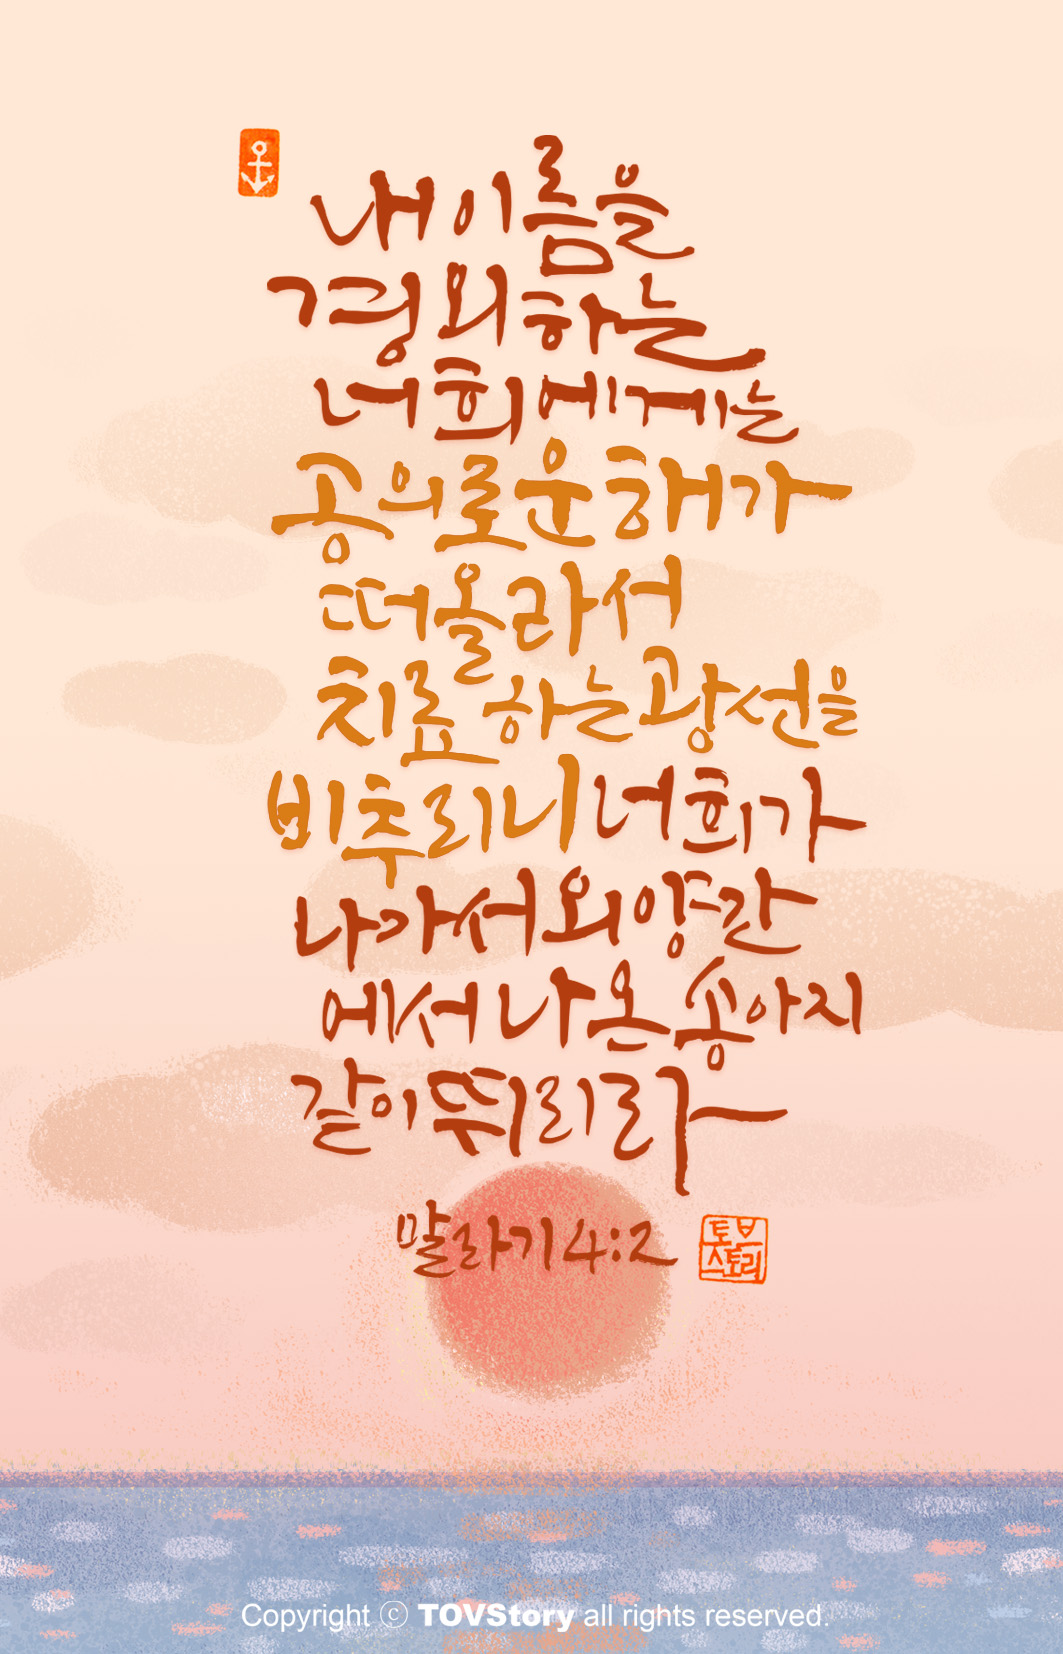 내 이름을
경외하는
너희에게는
공의로운 해가
떠올라서
치료하는 광선을
비추리니 너희가
나가서 외양간
에서 나온 송아지
같이 뛰리라
말라기 4:2
토브
스토리
Copyright ⓒ TOVStory all rights reserved.